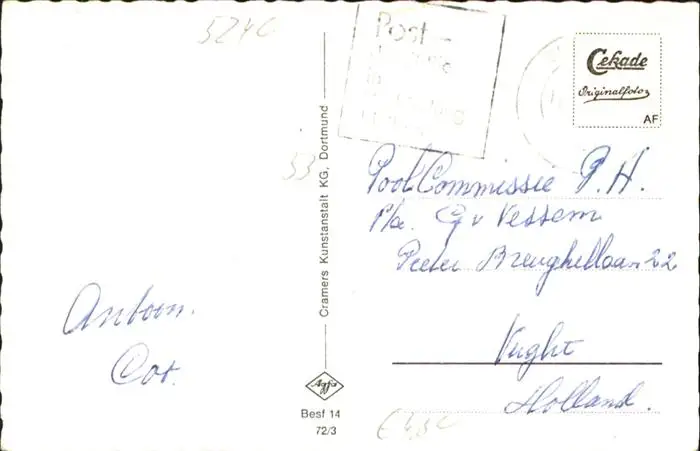 5240
Post-
Cekade
Originalfoto
AF
53
Cramers Kunstanstalt KG, Dortmund
Pool Commissie P.H.
p/a. G v Vessem
Pieter Breughellaan 22
Antoon.
Cor.
Vught
Holland.
Agfa
Besf 14
72/3